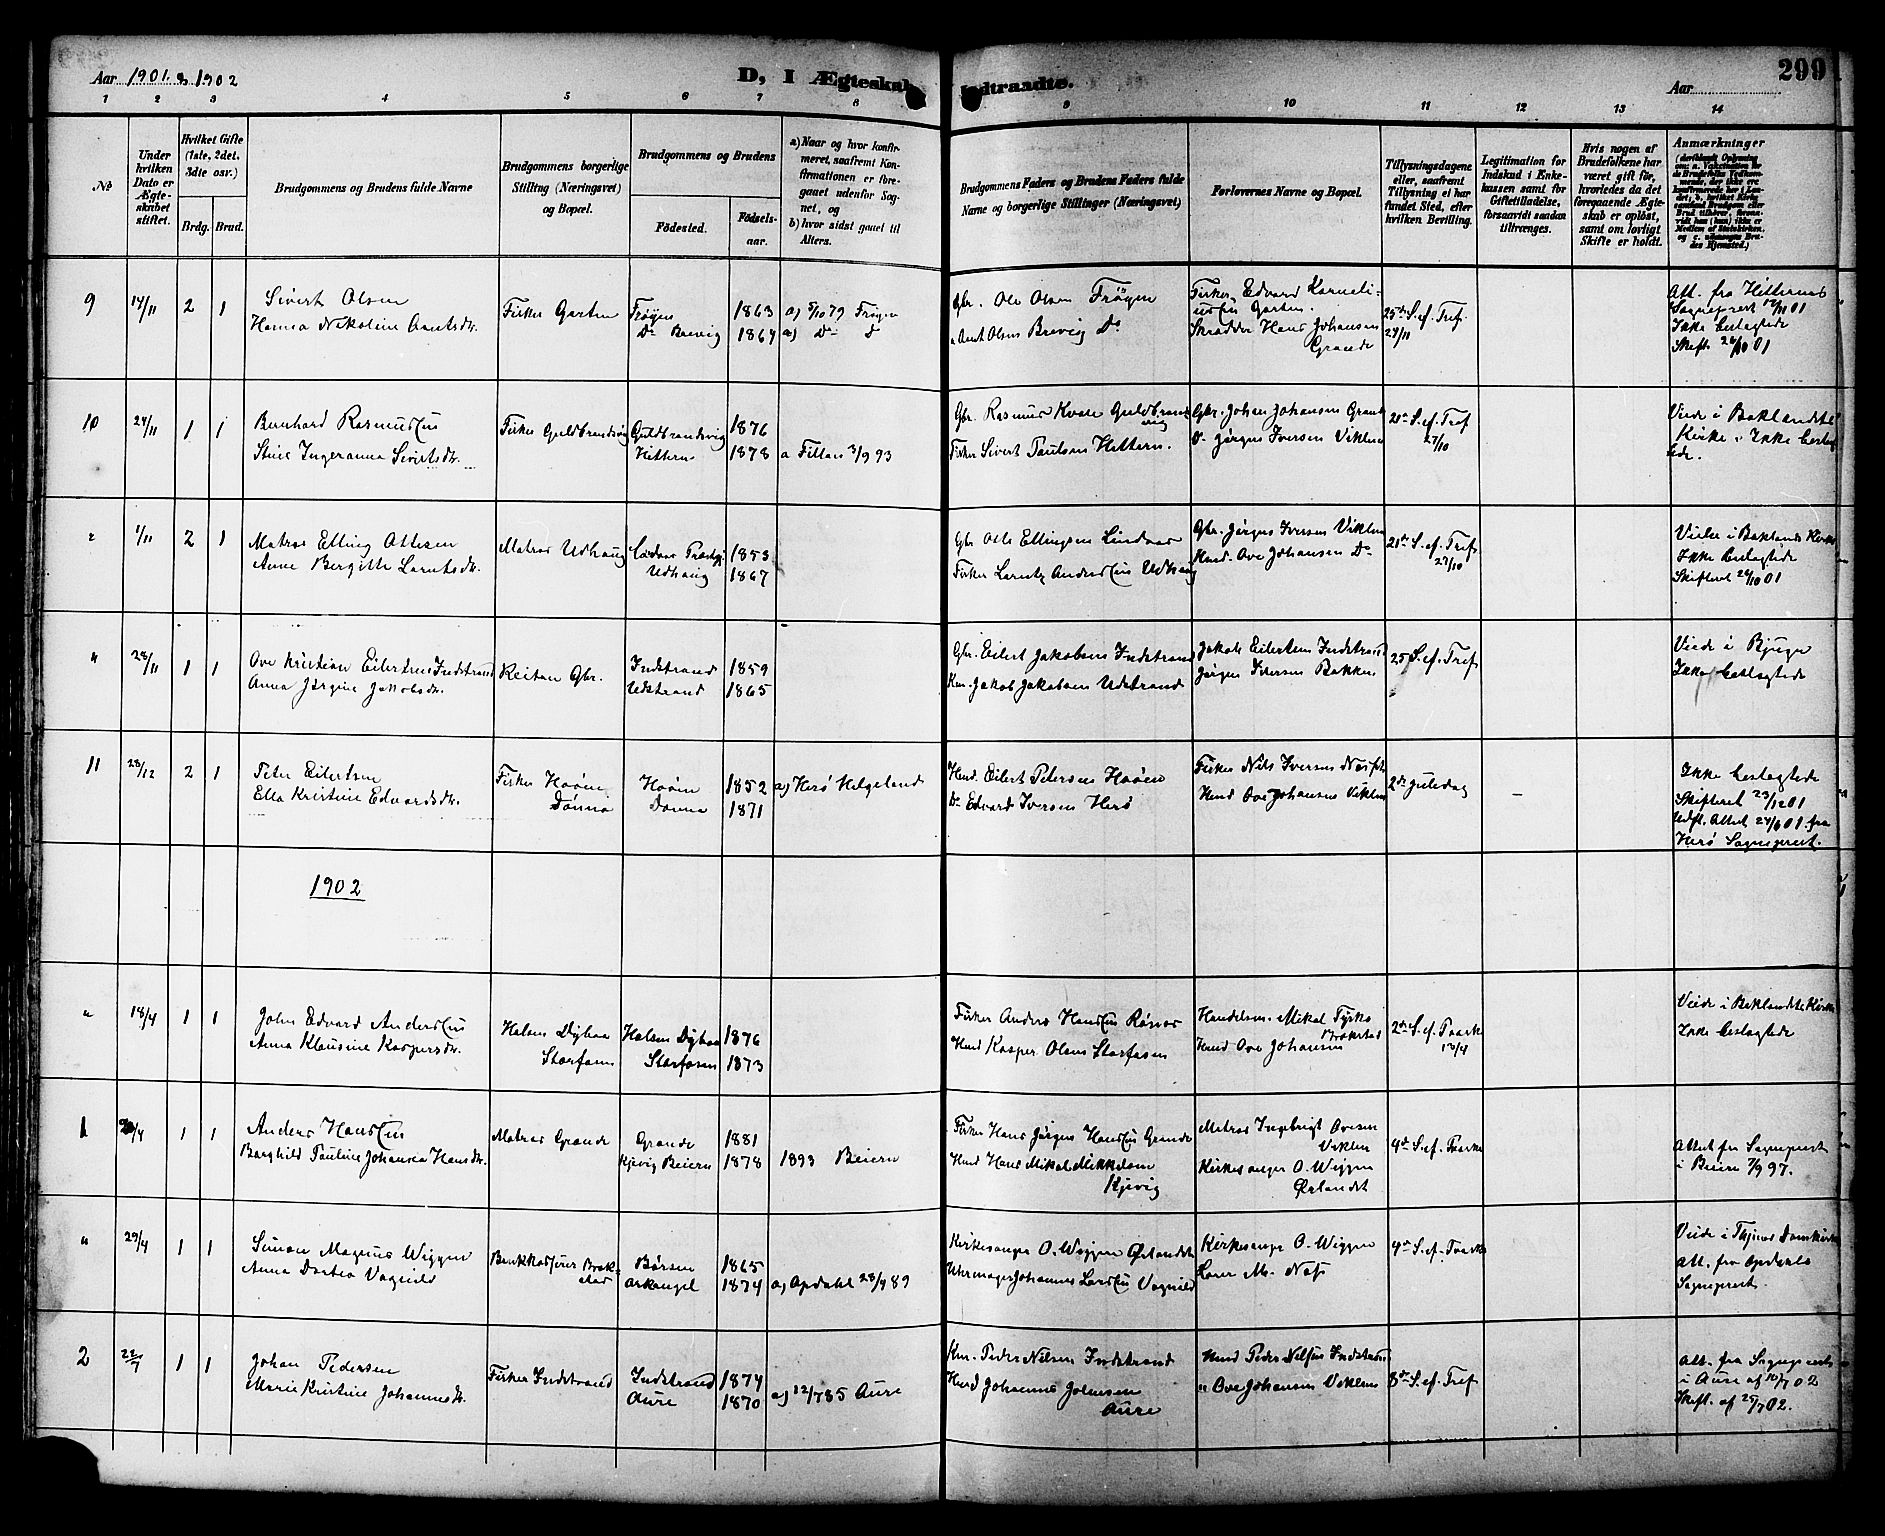 Aar 1901 & 1902
D, I Ægteskab indtraadte.
299
Aar
1 2 3 4 5 6 7 8 9 10 11 12 13 14
No
Under hvilken Dato er Ægteskabet stiftet.
Hvilket Gifte (1ste, 2det, 3die osv.)
Brdg. Brud.
Brudgommens og Brudens fulde Navne
Brudgommens borgerlige Stilling (Næringsvei) og Bopæl.
Brudgommens og Brudens
Födested.
Födselsaar.
a) Naar og hvor konfirmeret, saafremt Konfirmationen er foregaaet udenfor Sognet, og
b) hvor sidst gaaet til Alters.
Brudgommens Faders og Brudens Faders fulde Navne og borgerlige Stillinger (Næringsvei)
Forlovernes Navne og Bopæl.
Tillysningsdagene eller, saafremt Tillysning ei har fundet Sted, efter hvilken Bevilling.
Legitimation for Indskud i Enkekassen samt for Giftetilladelse, forsaavidt saadan tiltrænges.
Hvis nogen af Brudefolkene har været gift før, hvorledes da det foregaaende Ægteskab er opløst, samt om lovligt Skifte er holdt.
Anmærkninger
9 14/11 2 1
Sivert Olsen
Hanna Nikoline Arntsdr.
Fisker Garten
Frøyen
Do Brevig
1863
1864
a) 5/10 79 Frøyen
a) Do D
Gbr. Ole Olsen Frøyen
" Arnt Olsen Brevig Do
Fisker Edvard Korneliussen Garten.
Skrædder Hans Johansen Grande
25de S. ef. Tref. 24/11
Att. fra Hitterns Sognepræst 12/11 01
Ikke beslægtede
Skift. 26/10 01
10 24/11 1 1
Bernhard Rasmussen
Stine Ingeranna Sivertsdr.
Fisker Guldbrandsvig
Guldbrandsvig
Hittern
1876
1878
a Fillan 3/9 93
Gbr. Rasmus Kvale Guldbrandsvig
Fisker Sivert Paulsen Hittern.
Gbr. Johan Johansen Grande
Do Jørgen Iversen Viklem
21de S. ef. Tref 27/10
Viede i Baklandets Kirke. Ikke beslægtede.
" 1/11 2 1
Matros Elling Ottesen
Anne Bergitte Larntsdr.
Matros Udhaug
Udhaug
1853
1867
Gbr Otte Ellingsen
Fisker Larntz Anderssen Udhaug
Gbr. Jørgen Iversen Viklem
Husd. Ove Johansen Do
21de S. ef. Tref. 27/10
Viede i Baklands Kirke
Ikke beslægtede
Skifteret 26/10 01
" 28/11 1 1
Ove Kristian Eilertsen Indstrand
Anna Jørgine Jakobsdr.
Reitan Gbr.
Indstrand
Udstrand
1859
1865
Gbr. Eilert Jakobsen Indstrand
Km. Jakob Jakobsen Udstrand
Jakob Eilertsen Indstrand
Jørgen Iversen Bakken
25 S. ef. Tref
Viede i Bjugn
Ikke beslægtede
11 28/12 2 1
Peter Eilertsen
Ella Kristine Edvardsdr.
Fisker Hoøen
Dønna
Hoøen
Dønna
1852
1871
a) Herø Helgeland
Husd. Eilert Petersen Hoøen
Do Edvard Iversen Herø
Fisker Nils Iversen Næss
Husd Ove Johansen Viklem
2de Juledag
–
Ikke beslægtede
Skifteret 23/12 01
Herø Sognepræst.
1902
" 18/4 1 1
John Edvard Anderssen
Anna Klausine Kaspersdr.
Halsen Dybaa
Storfosen
Halsen Dybaa
Storfosen
1876
1873
Fisker Anders Hanssen
Husd Kasper Olsen Storfosen
Handelsm. Mikal Tyskø
Brækstad
Husd Ove Johansen
2den S. ef. Paaske 13/4
Viede i Baklandets Kirke
Ikke beslægtede
1
1 1
Anders Hanssen
Borghild Pauline Johansen Hansdr.
Matros Grande
Grande
Kjevig Beiern
1881
1878
1893 Beiern
Fisker Hans Jørgen Hanssen Grande
Husd Hans Mikal Mikkelsen Kjevig
Matros Ingebrigt Ovesen Viklem
Kirkesanger O. Wiggen Ørlandet
4de S. ef. Paaske
Attest fra Sognepræst
i Beiern 7/9 97.
" 29/4 1 1
Simon Magnus Wiggen
Anna Dortea Vognild
Brækstad
Børsen
Arkangel
1865
1874
a) Opdahl 28/7 89
Kirkesanger O. Wiggen Ørlandet
Uhrmager Johannes Larssen Vognild
Kirkesanger O. Wiggen
Lærer M. Næss
4de S. ef. Paaske
Viede i Thjems Domkirke
Att. fra Opdahls
Sognepræst.
2 22/7 1 1
Johan Pedersen
Marie Kristine Johannesdr.
Fisker Indstrand
Indstrand
Aure
1874
1870
a) 12/7 85 Aure
Km. Peder Nilsen Indstrand
Husd Johannes Johnsen Aure
Husd Peder Nilssen Indstrand
" Ove Johansen Viklem
8de S. ef. Tref
Att. fra Sognepræsten
i Aure af 10/7 02
Skift. af 25/7 02.